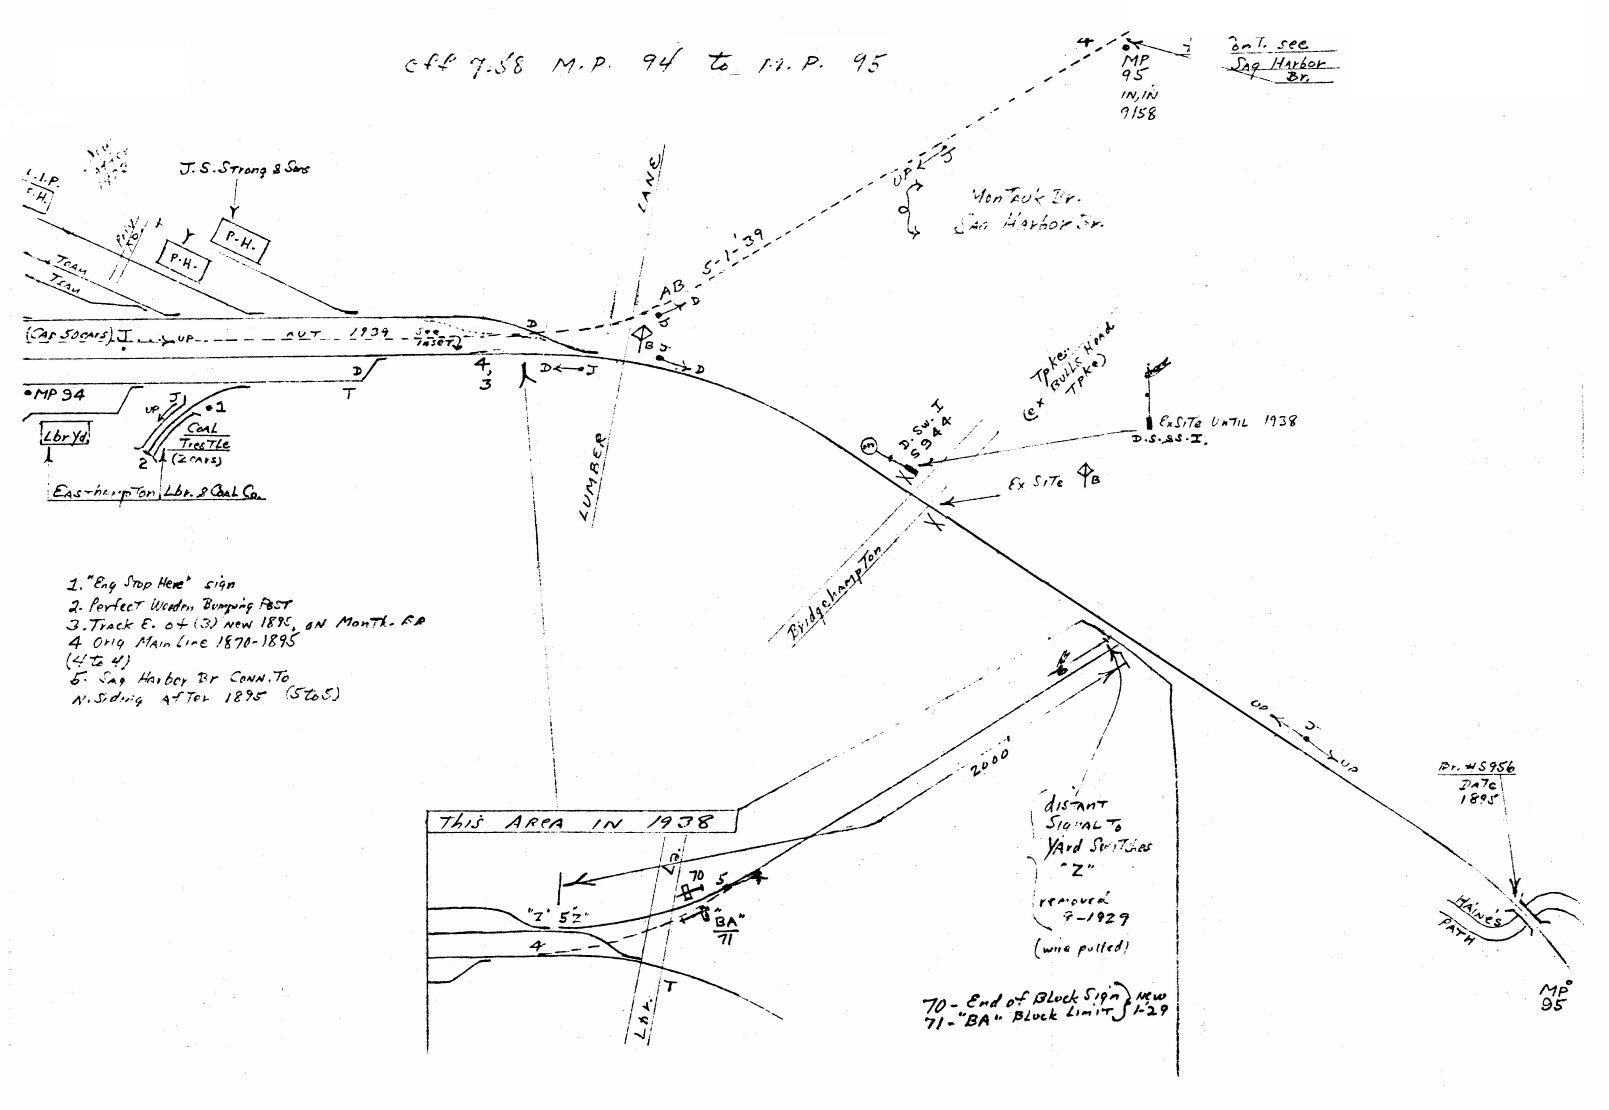 eff 7.58 M.P. 94 to M.P. 95
4
MP
95
IN, IN
9/58
ConT. see
SAG HArbor
Br.
J.S. Strong & Sons
P.H.
P.H.
Priv.
RD.
X
TEAM
TEAM
(CAP 50 CARS) J
UP
OUT 1939
See
INSET
D
4,
3
D J
D
T
•MP 94
Lbr Yd.
J
UP
•1
COAL
TresTLe
(2 CARS)
2
EASTHAmpTon Lbr. & COAL Co.
LANE
LUMBER
AB
5-1-'39
D
J
B
J
D
UP
J
MonTAUK Br.
SAG HArbor Br.
Tpke.
(ex BULLS Head
Tpke)
D. Sw. I
S944
X
X
ExSITE UNTIL 1938
D.S.&S.I.
Ex SITE
B
BridgehampTon
1. "Eng Stop Here" sign
2. Perfect Wooden Bumping POST
3. Track E. of (3) New 1895, ON MonTk. ExD
4 Orig MAin Line 1870-1895
(4 to 4)
5. SAG Harbor Br CoNN. To
N. Siding AfTer 1895 (5 to 5)
2000'
UP
J
UP
Br. #S956
DATE
1895
HAINE'S
PATH
MP
95
This AREA IN 1938
Ln.
70
5
4
"Z" 5 "Z"
"BA"
71
4
T
Lbr.
disTANT
SIGNAL To
YArd Switches
"Z"
removed
9-1929
(wire pulled)
70 - End of BLock Sign
71 - "BA" BLock LimiT
New
1-29